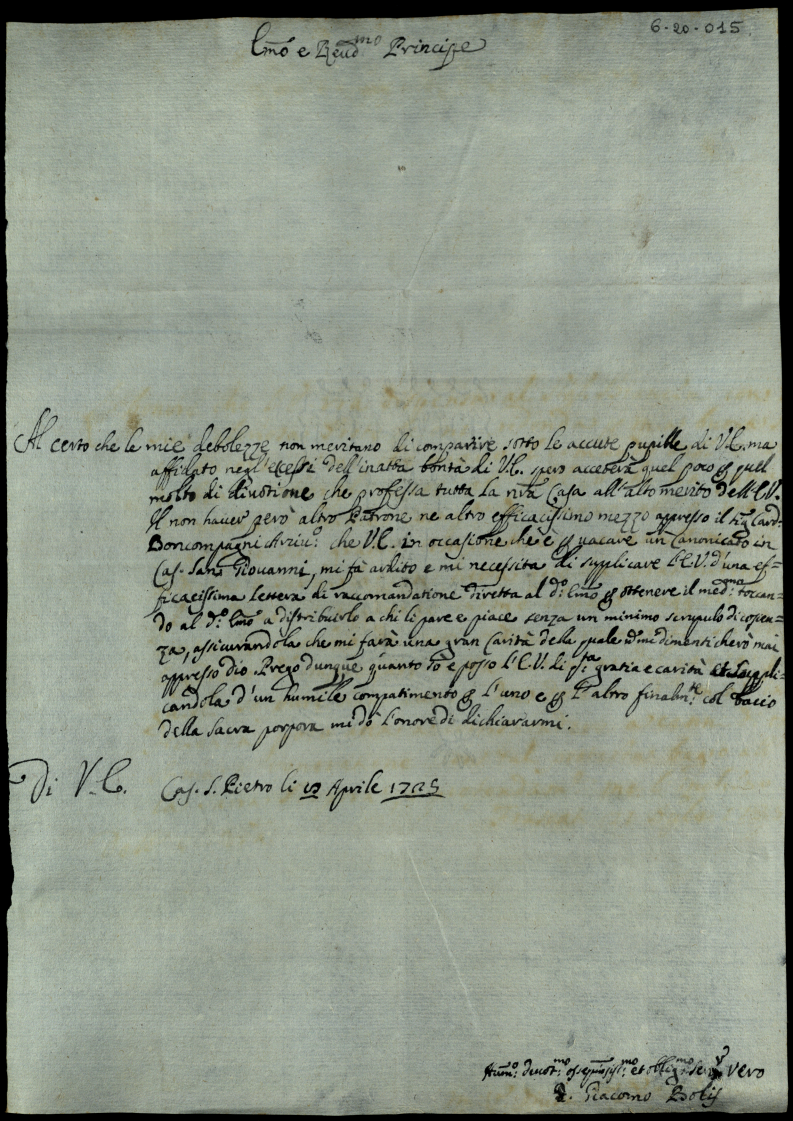 6-20-015
Em̃o e Reud.mo Principe
Al certo che le mie debolezze non meritano di comparire sotto le accute pupille di V.E. ma
affidato negl'eccessi dell'inatta bontà di V.E. spero acceterà quel poco quel
molto di divotione che professa tutta la nr̃a Casa all'alto merito dell'E.V.
Il non haver però altro Patrone ne altro efficacissimo mezzo appresso il Card.
Boncompagni che V.E. in occasione che è vacare un Canonicato in
Cas. San Giovanni, mi fà ardito e mi necessita di supplicare l'E.V. d'una ef=
ficacissima lettera di raccomandatione diretta al d.o Em̃o ottenere il med.mo toccan=
do al d.o Em̃o a distribuirlo a chi li pare e piace senza un minimo scrupulo di
za, assicurandola che mi farà una gran carità della quale mi dimenticherò mai
appresso Dio. Prego dunque quanto sò e posso l'E.V. di gratia e carità suppli-
candola d'un humile compatimento l'uno e l'altro col bacio
della sacra porpora mi dò l'onore di dichiararmi.
Di V.E. Cas. S. Pietro li Aprile 1725
Hum.o deuot.mo et oblig.mo vero
Giacomo